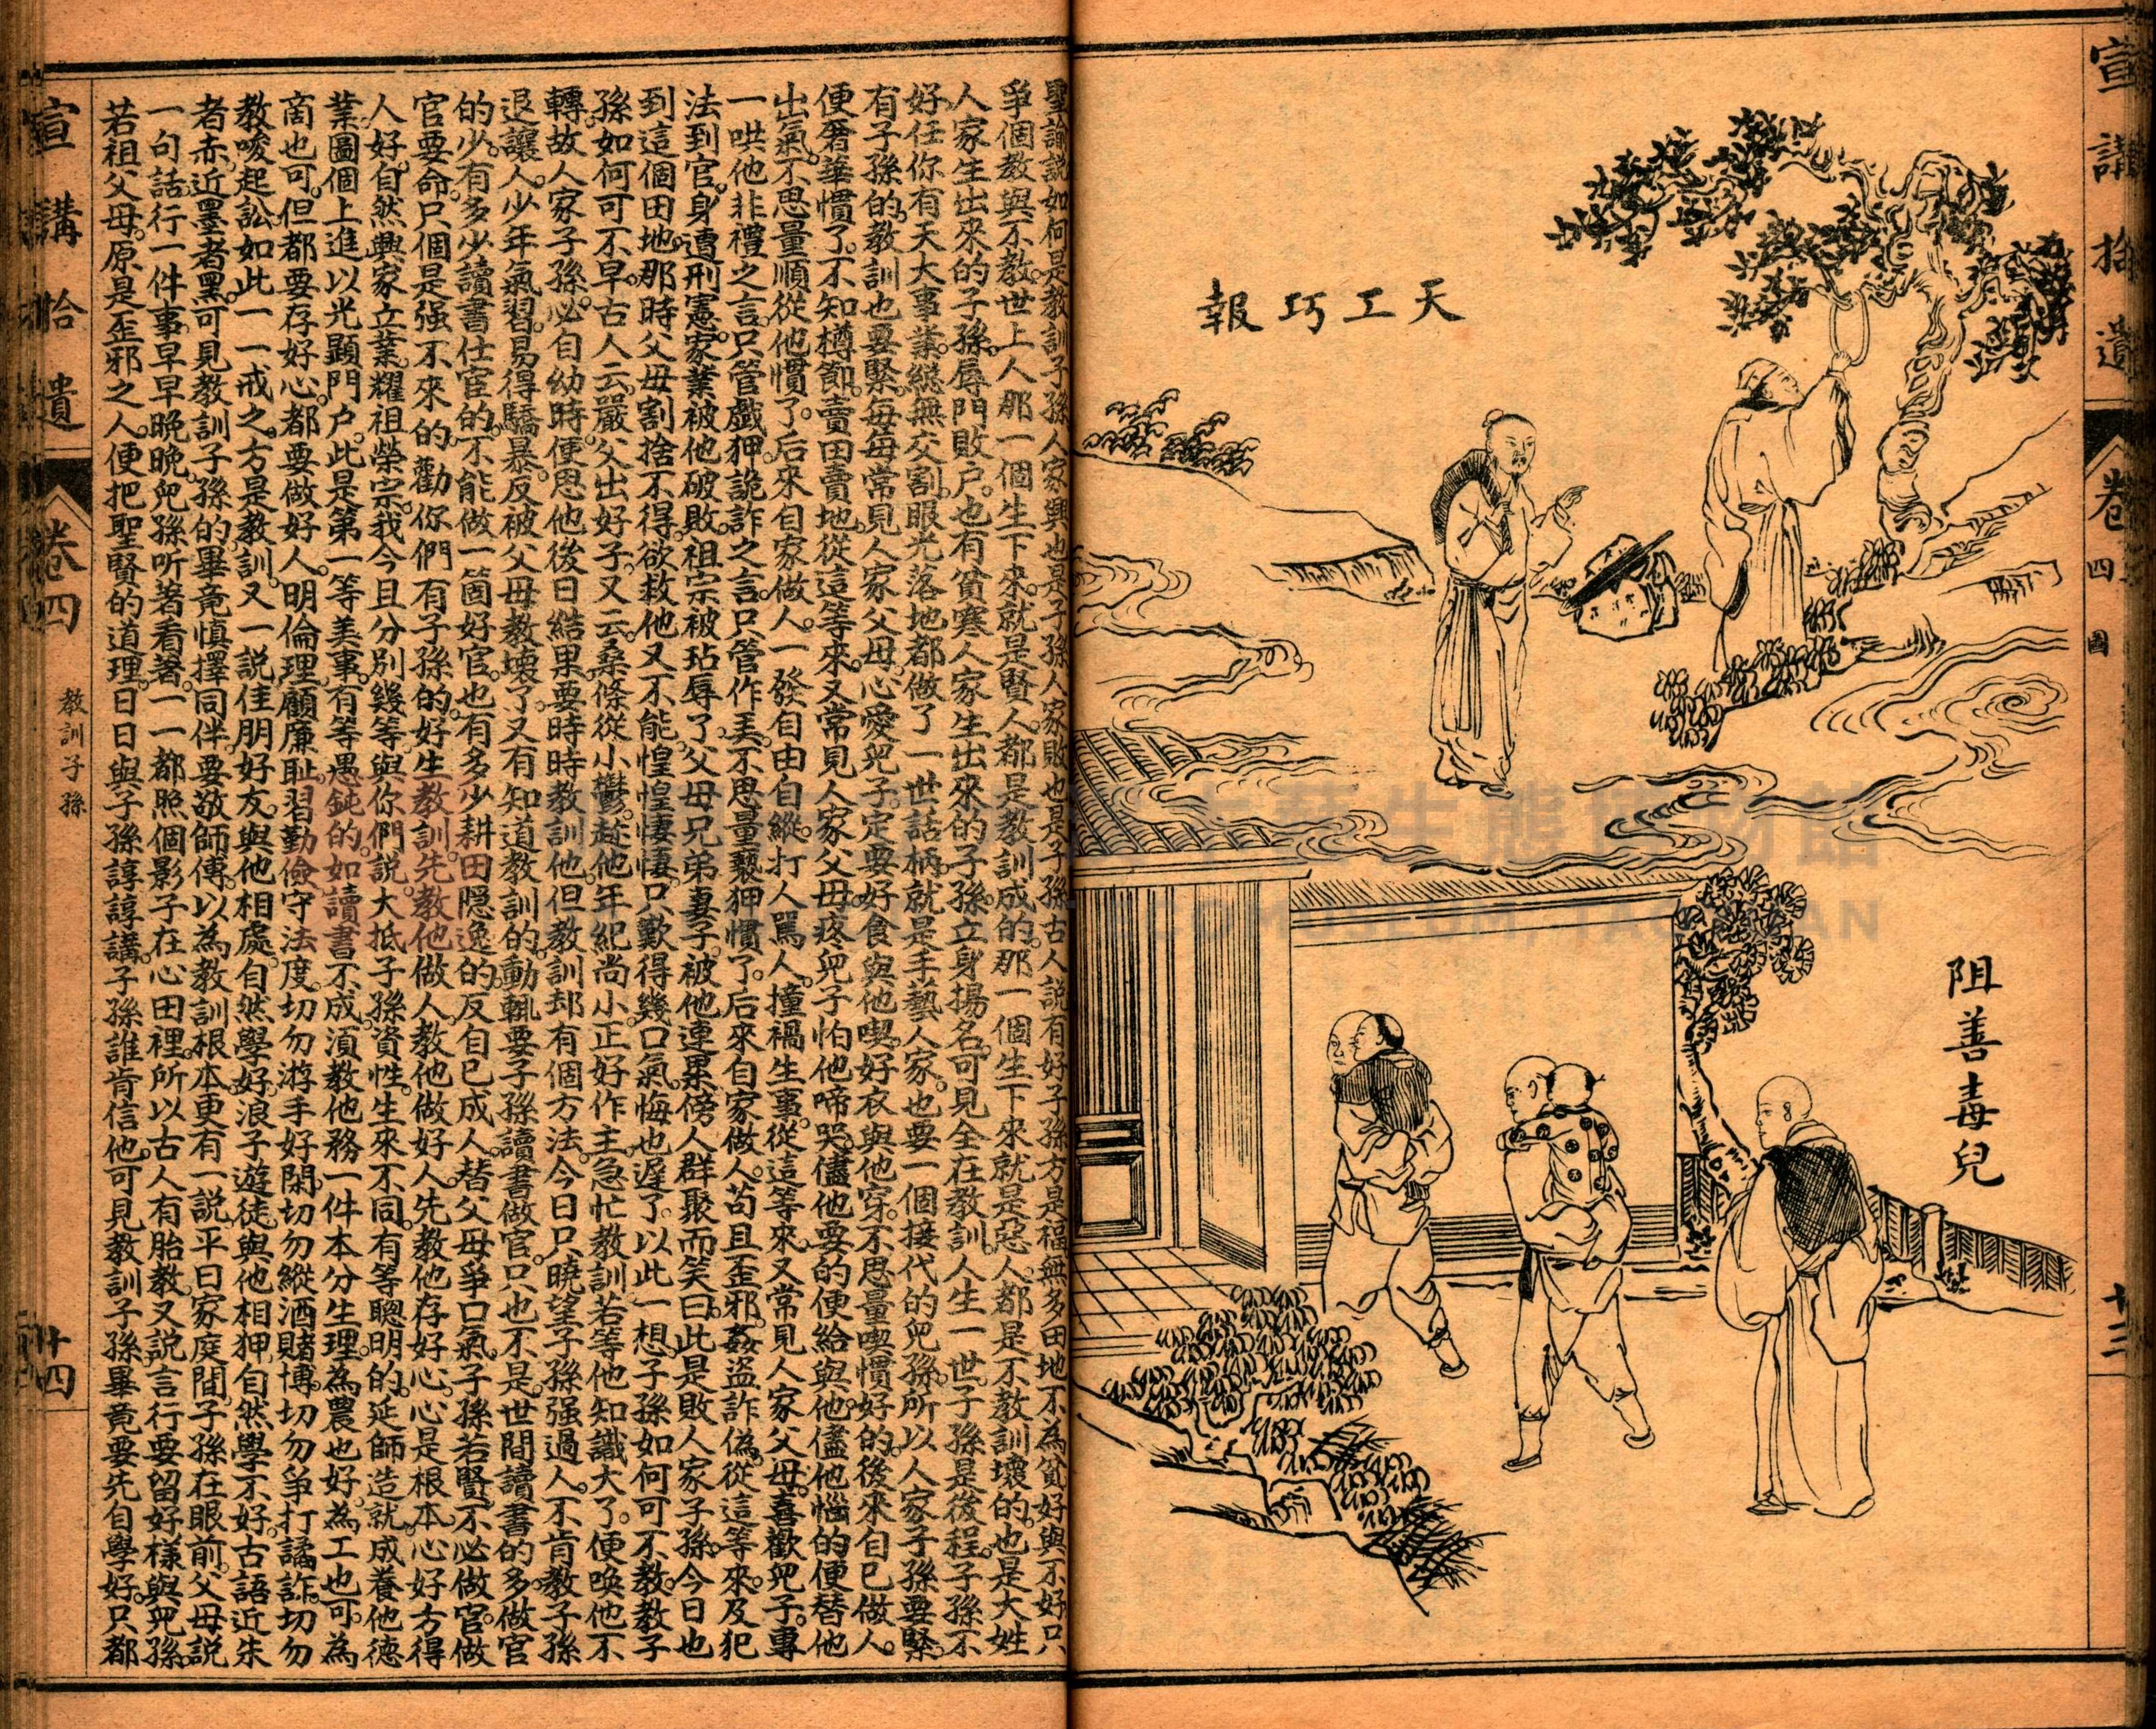 宣講拾遺
卷四
圖
廿三
天工巧報
阻善毒兒
聖諭說如何是教訓子孫人家興也是子孫人家敗也是子孫古人說有好子孫方是福無多田地不為貧好與不好只
爭個教與不教世上人那一個生下來就是賢人都是教訓成的那一個生下來就是惡人都是不教訓壞的也是大姓
人家生出來的子孫辱門敗户也有貧寒人家生出來的子孫立身揚名可見全在教訓人生一世子孫是後程子孫不
好任你有天大事業總無交割眼光落地都做了一世話柄就是手藝人家也要一個接代的兒孫所以人家子孫要緊
有子孫的教訓也要緊每每常見人家父母心愛兒子定要好食與他喫好衣與他穿不思量喫慣好的後來自己做人
便奢華慣了不知樽節賣田賣地從這等來又常見人家父母疼兒子怕他啼哭儘他要的便給與他儘他惱的便替他
出氣不思量順從他慣了后來自家做人一發自由自縱打人罵人撞禍生事從這等來又常見人家父母喜歡兒子專
一哄他非禮之言只管戲狎詭詐之言只管作美不思量褻狎慣了后來自家做人苟且歪邪姦盜詐偽從這等來及犯
法到官身遭刑憲家業被他破敗祖宗被玷辱了父母兄弟妻子被他連累傍人群聚而笑曰此是敗人家子孫今日也
到這個田地那時父母割捨不得欲救他又不能惶惶悽悽只歎得幾口氣悔也遲了以此一想子孫如何可不教教子
孫如何可不早古人云嚴父出好子又云桑條從小鬱趁他年紀尚小正好作主急忙教訓若等他知識大了便喚他不
轉故人家子孫必自幼時便思他後日結果要時時教訓他但教訓却有個方法今日只曉望子孫强過人不肯教子孫
退讓人少年氣習易得驕暴反被父母教壞了又有知道教訓的動輒要子孫讀書做官只也不是世間讀書的多做官
的少有多少讀書仕宦的不能做一箇好官也有多少耕田隱逸的反自已成人替父母爭口氣子孫若賢不必做官做
官要命只個是强不來的勸你們有子孫的好生教訓先教他做人教他做好人先教他存好心心是根本心好方得
人好自然興家立業耀祖榮宗我今且分別幾等與你們說大抵子孫資性生來不同有等聰明的延師造就成養他德
業圖個上進以光顯門户此是第一等美事有等愚鈍的如讀書不成須教他務一件本分生理為農也好為工也可為
商也可但都要存好心都要做好人明倫理顧廉耻習勤儉守法度切勿游手好閑切勿縱酒賭博切勿爭打譎詐切勿
教唆起訟如此一一戒之方是教訓又一說佳朋好友與他相處自然學好浪子遊徒與他相狎自然學不好古語近朱
者赤近墨者黑可見教訓子孫的畢竟慎擇同伴要敬師傅以為教訓根本更有一說平日家庭間子孫在眼前父母說
一句話行一件事早早晚晚兒孫听著看著一一都照個影子在心田裡所以古人有胎教又說言行要留好樣與兒孫
若祖父母原是歪邪之人便把聖賢的道理日日與子孫諄諄講子孫誰肯信他可見教訓子孫畢竟要先自學好只都
宣講拾遺
卷四
教訓子孫
廿四